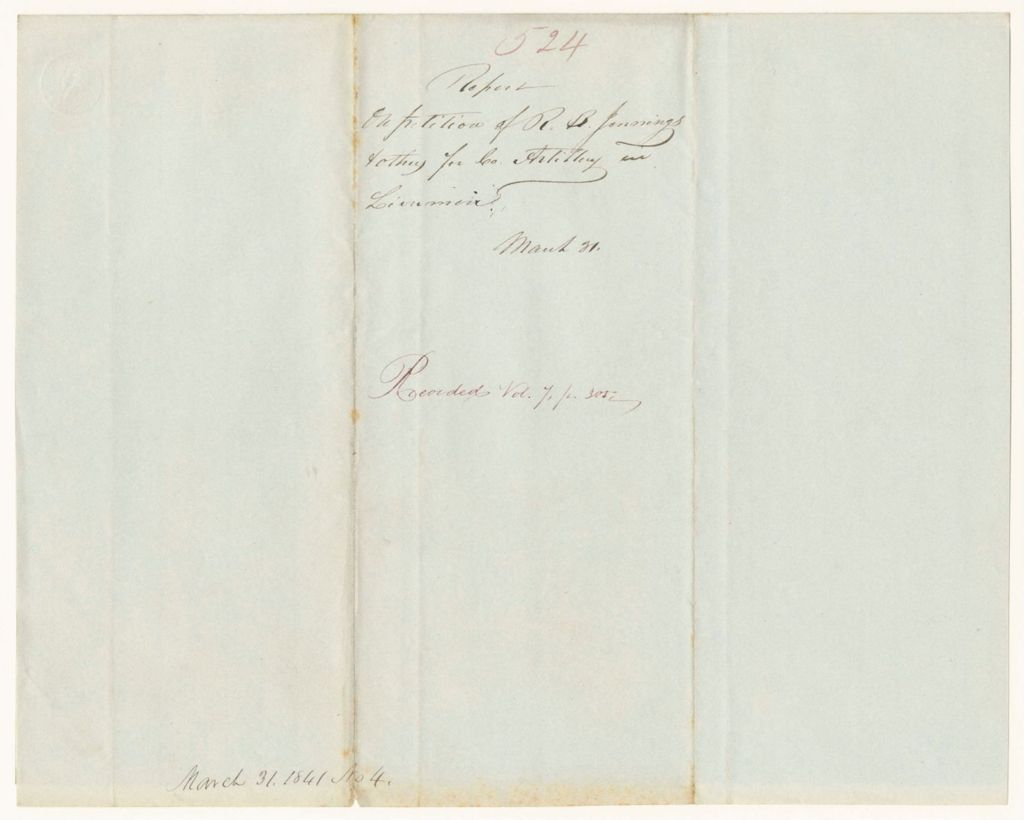 524
Report
On petition of R. B. Jennings
& others for Co. Artillery in
March 31.
Recorded Vol. 7, p. 305
March 31. 1841 No 4.